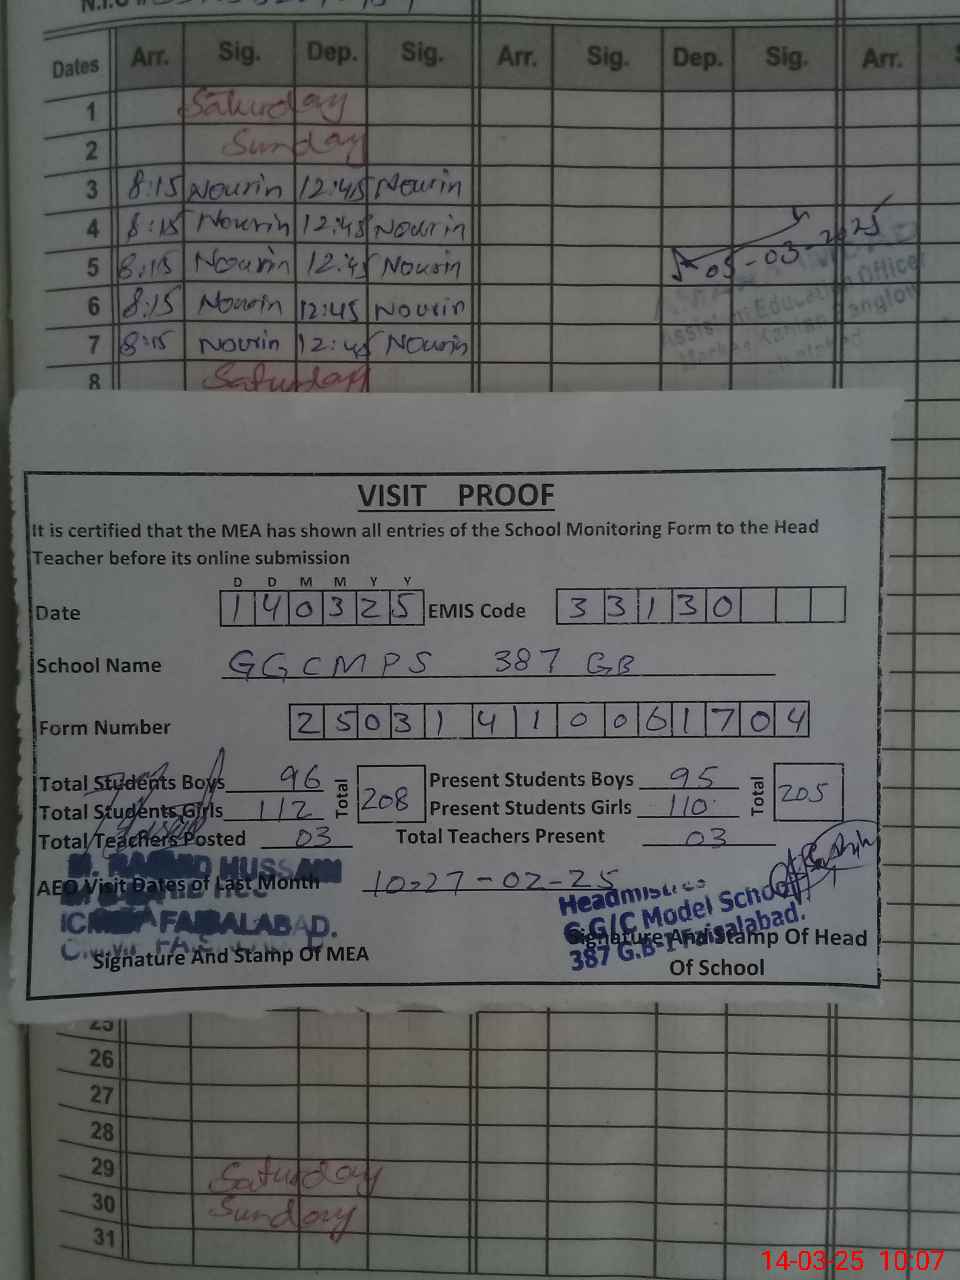 Dates Arr. Sig. Dep. Sig. Arr. Sig. Dep. Sig. Arr.
1 Saturday
2 Sunday
3 8:15 Nourin 12:45 Nourin
4 8:15 Nourin 12:45 Nourin
5 8:15 Nourin 12:45 Nourin
05-03-2025
6 8:15 Nourin 12:45 Nourin
Education Officer
7 8:15 Nourin 12:45 Nourin
8 Saturday
VISIT PROOF
It is certified that the MEA has shown all entries of the School Monitoring Form to the Head
Teacher before its online submission
D D M M Y Y
Date 1 4 0 3 2 5 EMIS Code 3 3 1 3 0
School Name GGCMPS 387 GB
Form Number 2 5 0 3 1 4 1 0 0 6 1 7 0 4
Total Students Boys 96 Total 208 Present Students Boys 95 Total 205
Total Students Girls 112 Present Students Girls 110
Total Teachers Posted 03 Total Teachers Present 03
HUSSAIN
AEO Visit Dates of Last Month 10-27-02-25
Headmistress
G.G/C Model School
FAISALABAD.
387 G.B-1 Faisalabad.
Signature And Stamp Of MEA
Signature And Stamp Of Head
Of School
25
26
27
28
29 Saturday
30 Sunday
31
14-03-25 10:07